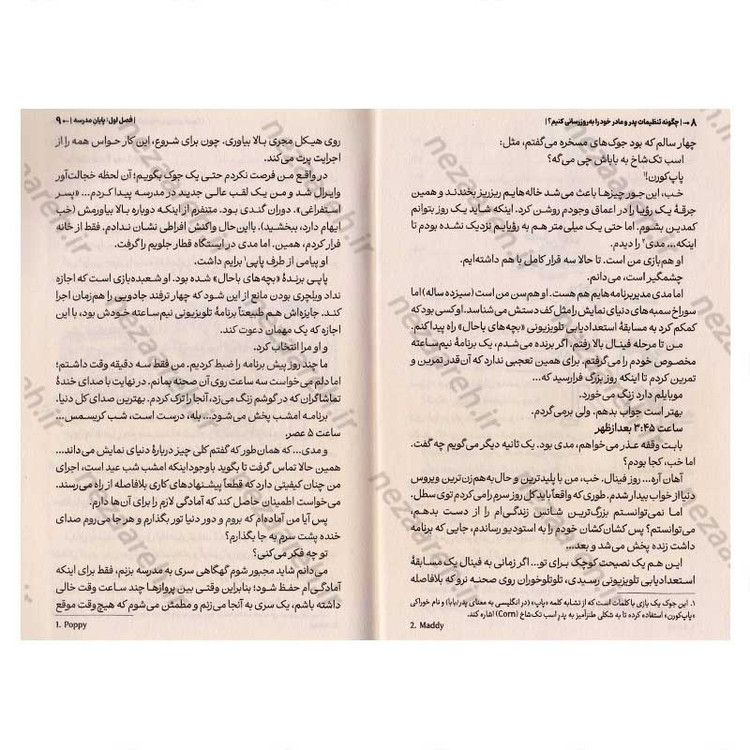 ۸ → | چگونه تنظیمات پدر و مادر خود را به‌روزرسانی کنیم؟ |
چهار سالم که بود جوک‌های مسخره می‌گفتم، مثل:
اسب تک‌شاخ به باباش چی می‌گه؟
پاپ‌کورن!¹
خب، این‌جور چیزها باعث می‌شد خاله‌هایم ریزریز بخندند و همین
جرقهٔ یک رؤیا را در اعماق وجودم روشن کرد. اینکه شاید یک روز بتوانم
کمدین بشوم. اما حتی یک میلی‌متر هم به رؤیایم نزدیک نشده بودم تا
اینکه... مدی² را دیدم.
او هم‌بازی من است. تا حالا سه قرار کاملی با هم داشته‌ایم.
چشمگیر است، می‌دانم.
اما مدی مدیربرنامه‌هایم هم هست. او هم‌سن من است (سیزده ساله) اما
سوراخ سمبه‌های دنیای نمایش را مثل کف دستش می‌شناسد. او کسی بود که
کمکم کرد به مسابقهٔ استعدادیابی تلویزیونی «بچه‌های باحال» راه پیدا کنم.
من تا مرحله فینال بالا رفتم. اگر برنده می‌شدم، یک برنامهٔ نیم‌ساعته
مخصوص خودم را می‌گرفتم. برای همین تعجبی ندارد که آن‌قدر تمرین و
تمرین کردم تا اینکه روز بزرگ فرارسید که...
موبایلم دارد زنگ می‌خورد.
بهتر است جواب بدهم. ولی برمی‌گردم.
ساعت ۳:۴۵ بعدازظهر
بابت وقفه عذر می‌خواهم، مدی بود. یک ثانیه دیگر می‌گویم چه گفت.
اما خب، کجا بودم؟
آهان آره... روز فینال. خب، من با پلیدترین و حال‌به‌هم‌زن‌ترین ویروس
دنیا از خواب بیدار شدم. طوری که واقعاً باید کل روز سرم را می‌کردم توی سطل.
اما نمی‌توانستم بزرگ‌ترین شانس زندگی‌ام را از دست بدهم،
می‌توانستم؟ پس کشان‌کشان خودم را به استودیو رساندم، جایی که برنامه
داشت زنده پخش می‌شد و بعد...
این هم یک نصیحت کوچک برای تو... اگر زمانی به فینال یک مسابقهٔ
استعدادیابی تلویزیونی رسیدی، تلوتلوخوران روی صحنه نرو که بلافاصله
۱. این جوک یک بازی با کلمات است که از تشابه کلمه «پاپ» (در انگلیسی به معنای پدر/بابا) و نام خوراکی
«پاپ‌کورن» استفاده کرده تا به شکلی طنزآمیز به پدر اسب تک‌شاخ (Corn) اشاره کند.
2. Maddy
| فصل اول: پایان مدرسه | ← ۹
روی هیکل مجری بالا بیاوری. چون برای شروع، این کار حواس همه را از
اجرایت پرت می‌کند.
در واقع من فرصت نکردم حتی یک جوک بگویم؛ آن لحظه خجالت‌آور
وایرال شد و من یک لقب عالی جدید در مدرسه پیدا کردم... «پسر
استفراغی». دوران گندی بود. متنفرم از اینکه دوباره بالا بیاورمش (خب
ایهام دارد، ببخشید). بااین‌حال واکنش افراطی نشان ندادم. فقط از خانه
فرار کردم، همین. اما مدی در ایستگاه قطار جلویم را گرفت.
او پیامی از طرف پاپی¹ برایم داشت.
پاپی برندهٔ «بچه‌های باحال» شده بود. او شعبده‌بازی است که اجازه
نداد ویلچری بودن مانع از این شود که چهار ترفند جادویی را هم‌زمان اجرا
کند. جایزه‌اش هم طبیعتاً برنامهٔ تلویزیونی نیم‌ساعته خودش بود، با این
اجازه که یک مهمان دعوت کند.
و او مرا انتخاب کرد.
ما چند روز پیش برنامه را ضبط کردیم. من فقط سه دقیقه وقت داشتم؛
اما دلم می‌خواست سه ساعت روی آن صحنه بمانم. در نهایت با صدای خندهٔ
تماشاگران که در گوشم زنگ می‌زد، آنجا را ترک کردم. بهترین صدای کل دنیا.
برنامه امشب پخش می‌شود... بله، درست است، شب کریسمس...
ساعت ۵ عصر.
و مدی... که همان‌طور که گفتم کلی چیز دربارهٔ دنیای نمایش می‌داند...
همین حالا تماس گرفت تا بگوید باوجود اینکه امشب شب عید است، اجرای
من چنان کیفیتی دارد که قطعاً پیشنهادهای کاری بلافاصله از راه می‌رسند.
می‌خواست اطمینان حاصل کند که آمادگی لازم را برای آن‌ها دارم.
پس آیا من آماده‌ام که بروم و دور دنیا تور بگذارم و هر جا می‌روم صدای
خنده پشت سرم به جا بگذارم؟
تو چه فکر می‌کنی؟
می‌دانم شاید مجبور شوم گهگاهی سری به مدرسه بزنم، فقط برای اینکه
آمادگی‌ام حفظ شود؛ بنابراین وقتی بین پروازها چند ساعت وقت خالی
داشته باشم، یک سری به آنجا می‌زنم و مطمئن می‌شوم که هیچ‌وقت موقع
1. Poppy
nezaareh.ir